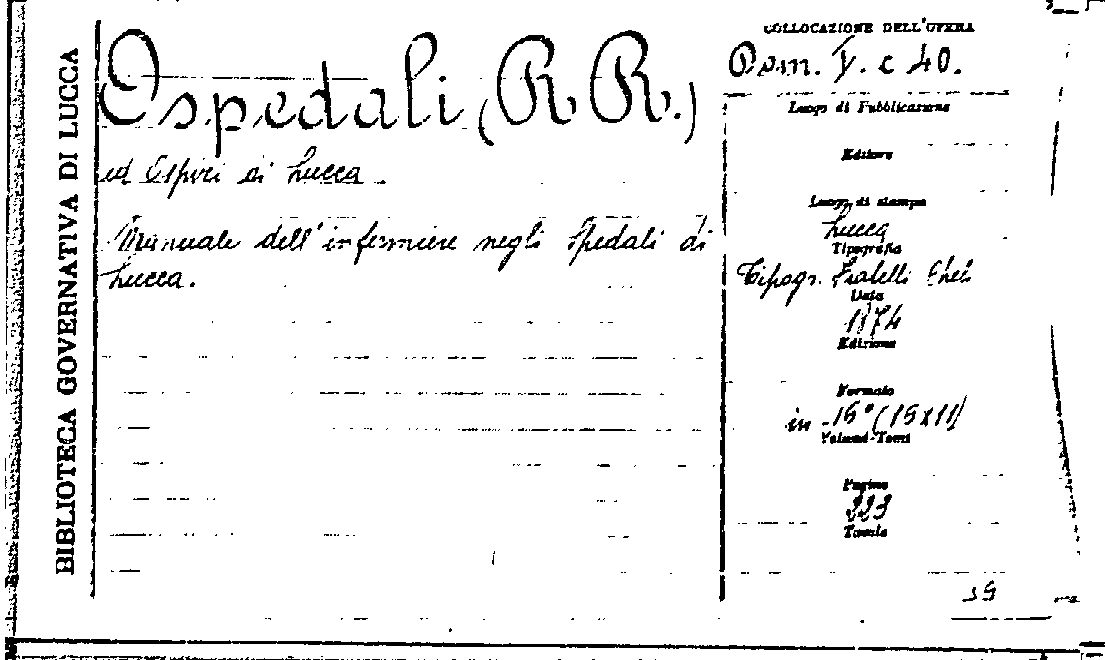 BIBLIOTECA GOVERNATIVA DI LUCCA
Ospedali (R R.)
ed Ospizi di Lucca.
Manuale dell'infermiere negli Spedali di
Lucca.
COLLOCAZIONE DELL'OPERA
V. c 40.
Luogo di Pubblicazione
Editore
Luogo di stampa
Lucca
Tipografia
Tipogr. Fratelli
Data
1874
Edizione
Formato
in -16° (15x11)
Volumi-Tomi
Pagine
223
Tavole